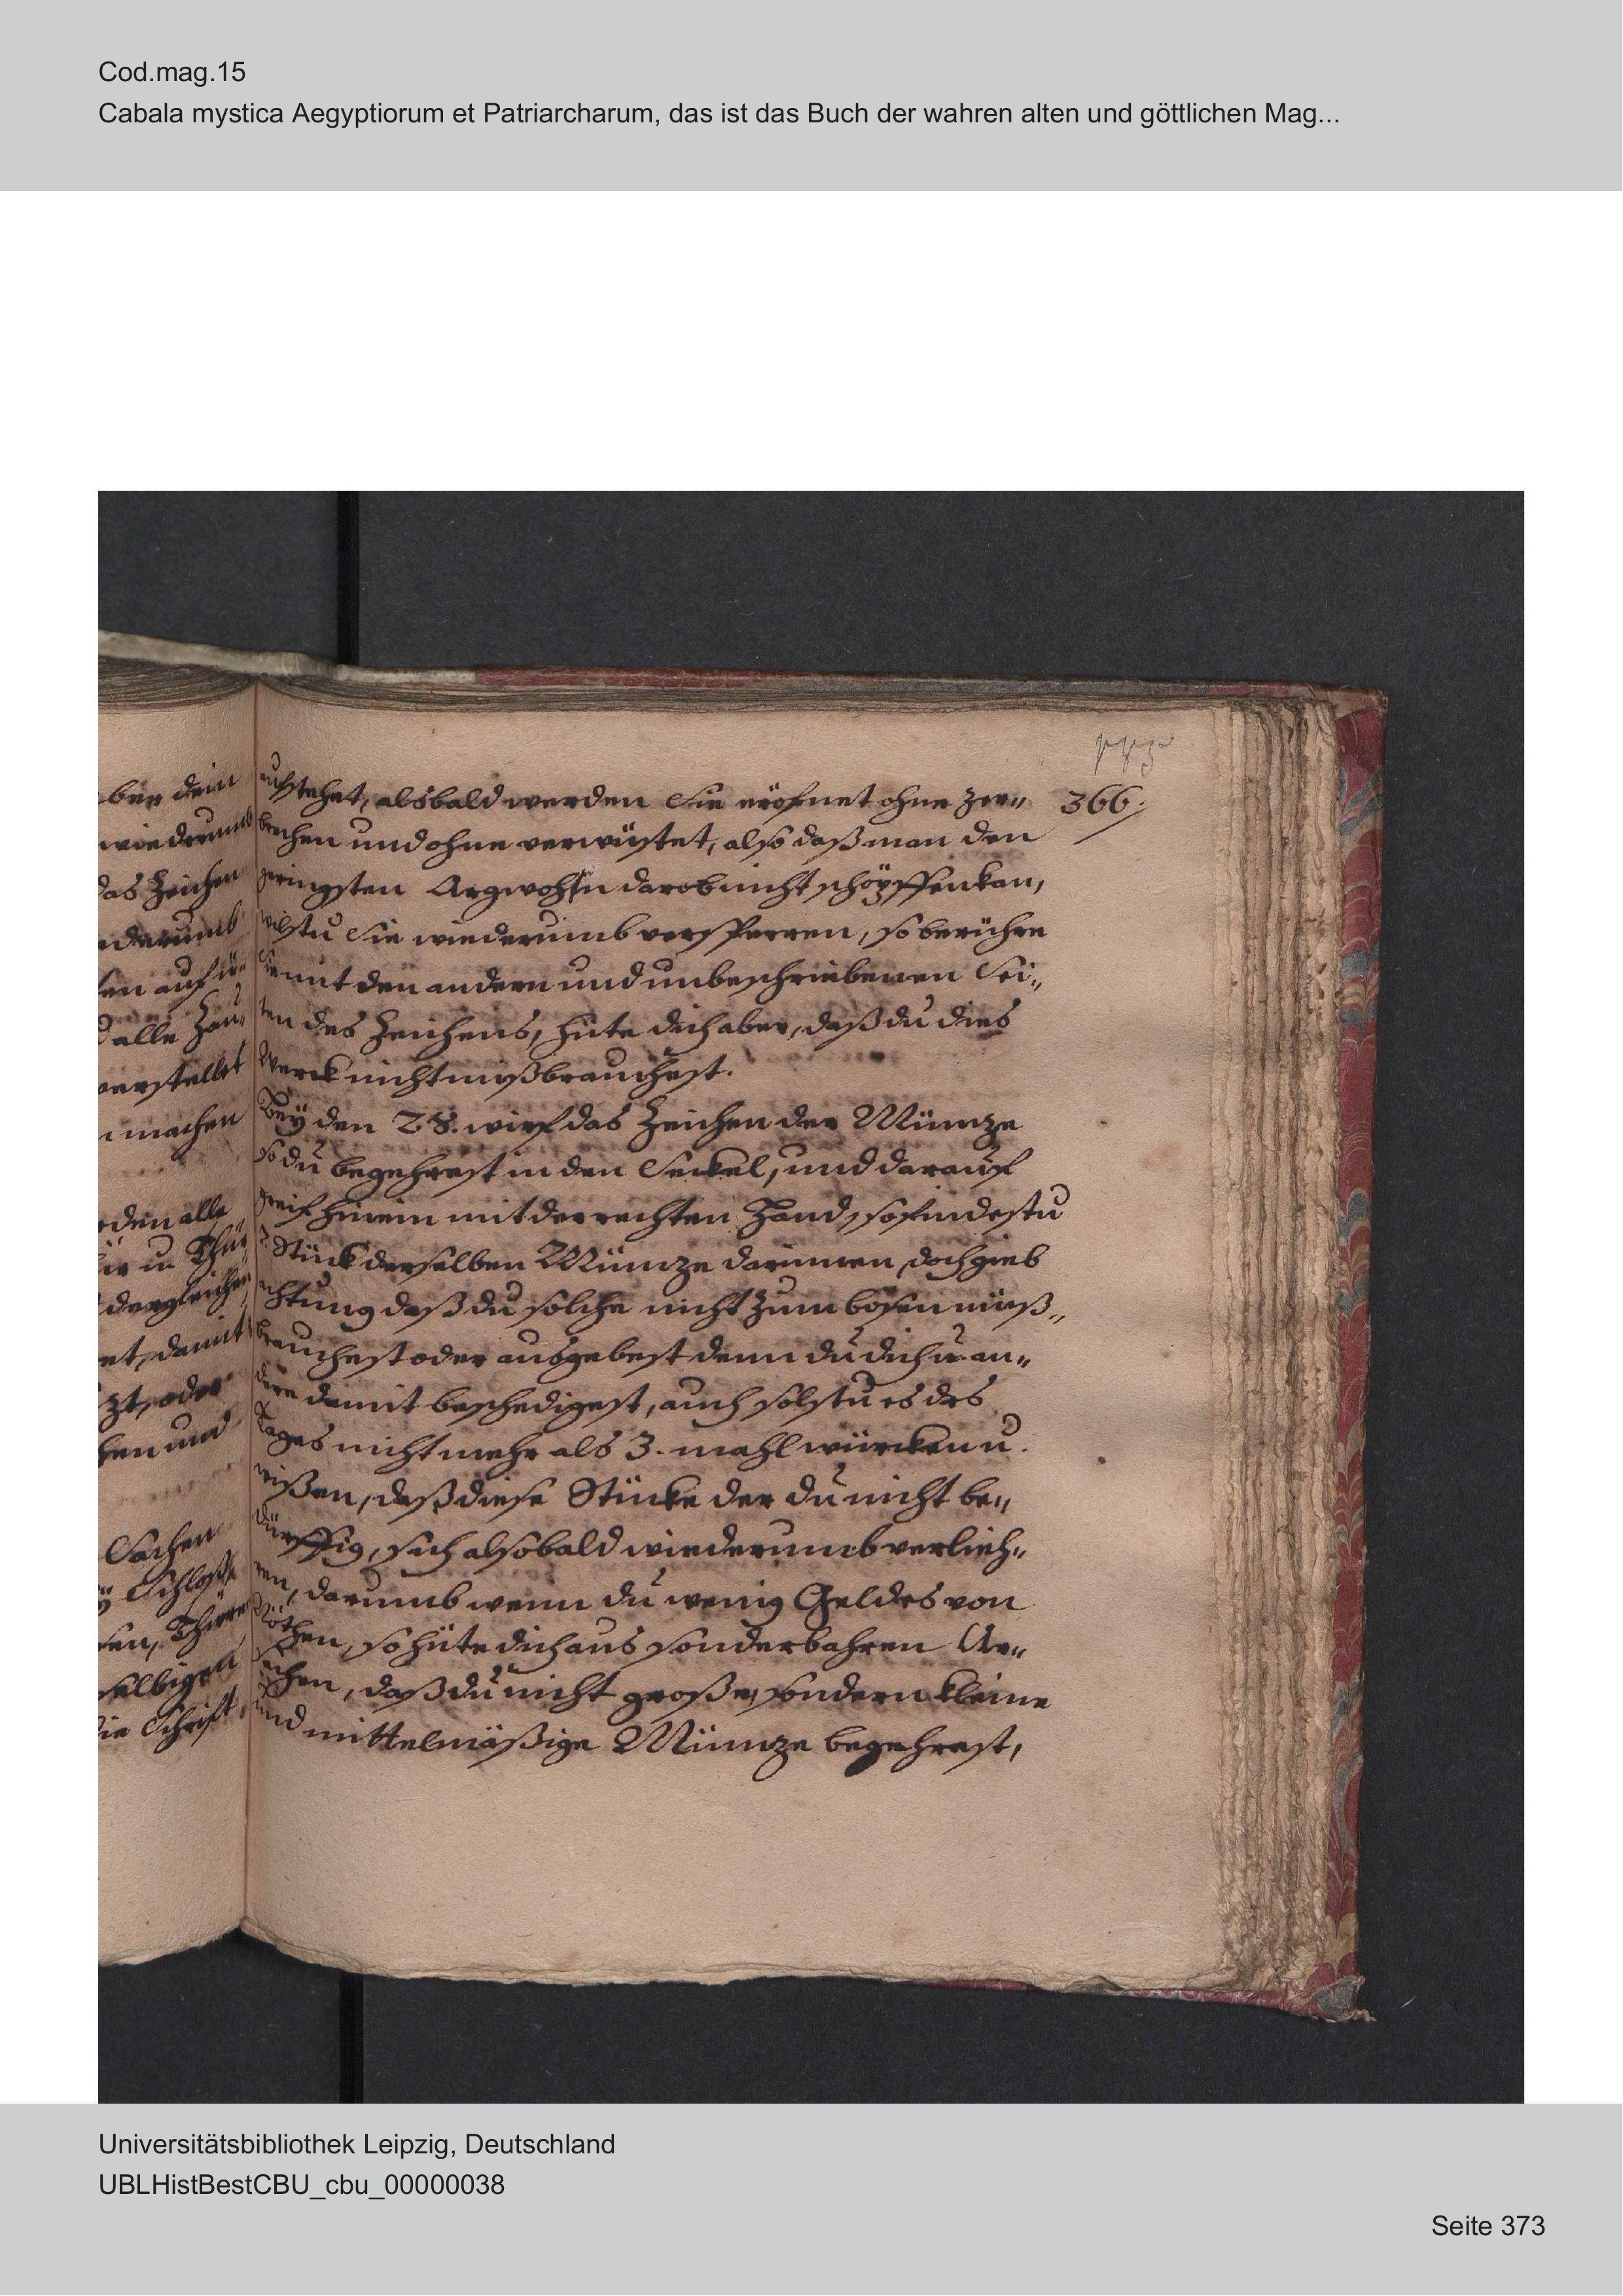 Cod.mag.15
Cabala mystica Aegyptiorum et Patriarcharum, das ist das Buch der wahren alten und göttlichen Mag...
366.
ber dein
wiederumb
das Zeichen
derumb
en auf ü-
d alle Zau-
verstellet
machen
rden alle
ür u. Thür
dergleichen
et, damit
zt, oder
hen und
Sachen
ÿ Schloß
ren, Thüre
selbigen
die Schrifft
aufstehet, alsbald werden Sie eröfnet ohne zer„
brechen und ohne verwüstet, also daß man den
geringsten Argwohn darob nicht schöpffen kan,
wilstu Sie wiederumb versperren, so berühre
Sie mit den andern und unbeschriebenen Sei„
ten des Zeichens, hüte dich aber, daß du dies
Werck nicht mißbrauchest.
Beÿ den 28. wirf das Zeichen der Müntze
so du begehrest in den Seckel, und darauf
greif hinein mit der rechten Hand, so findestu
7. Stück derselben Müntze darinnen, doch gieb
achtung daß du solche nicht zum bösen miß„
brauchest oder ausgebest denn du dich u. an„
dere damit beschedigest, auch solstu es des
Tages nicht mehr als 3. mahl würcken u.
wißen, daß diese Stücke der du nicht be„
dürfftig, sich alsobald wiederumb verlieh„
ren, darumb wenn du wenig Geldes von
Nöthen, so hüte dich aus sonderbahren Ur„
sachen, daß du nicht große, sondern kleine
und mittelmäßige Müntze begehrest,
Universitätsbibliothek Leipzig, Deutschland
UBLHistBestCBU_cbu_00000038
Seite 373